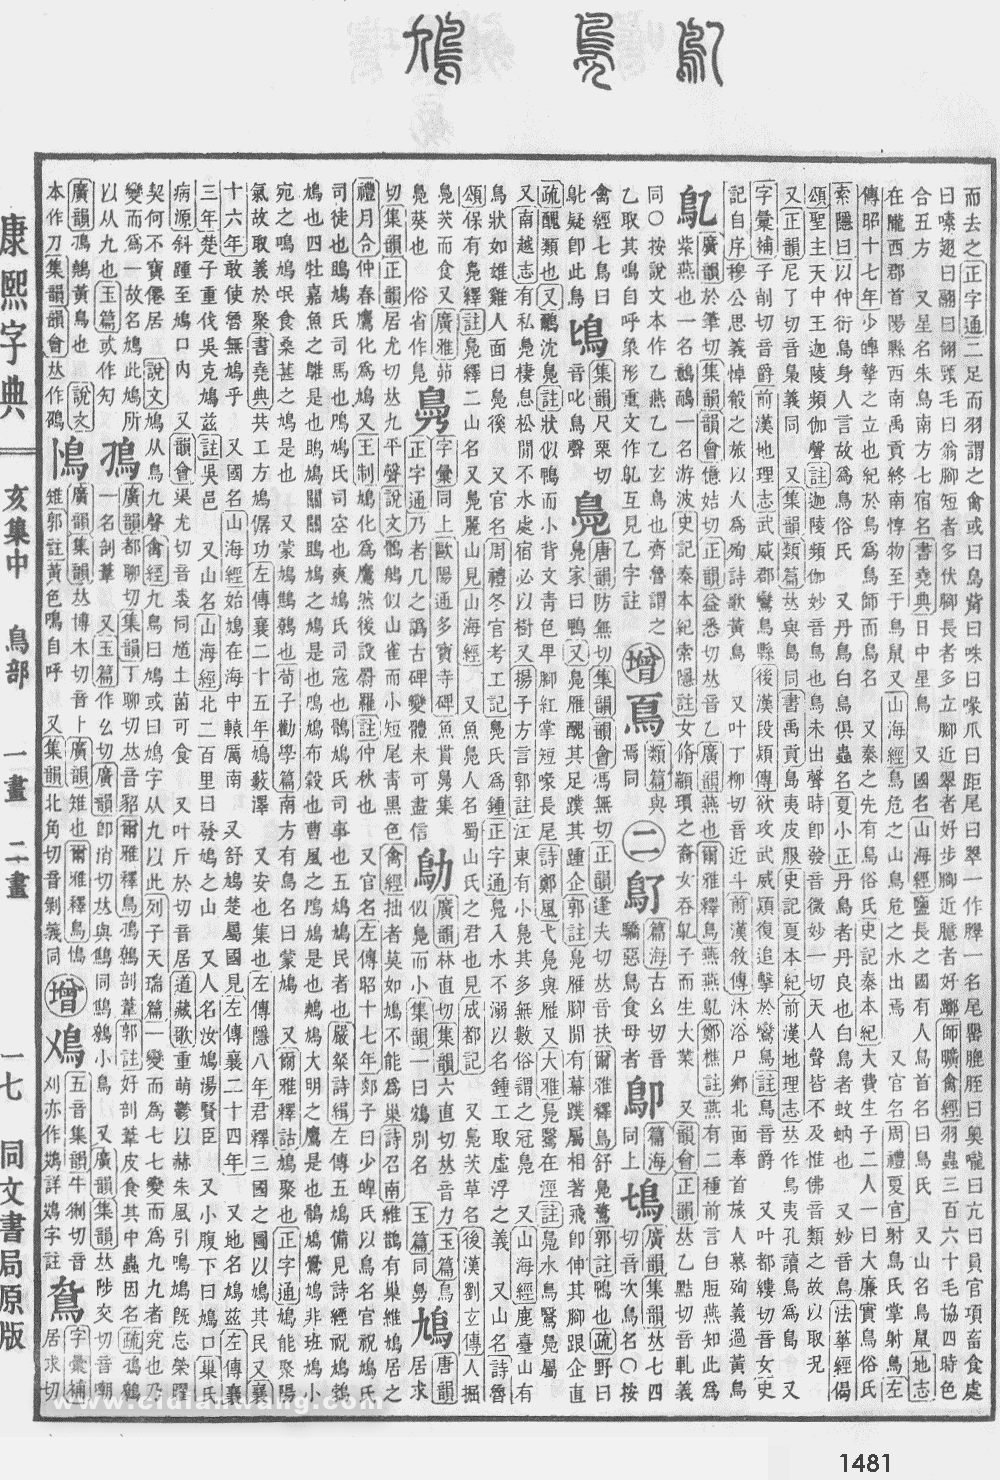 鳦 鳧 鳩
而去之正字通二足而羽謂之禽或曰鳥觜曰咮曰喙爪曰距尾曰翠一作膵一名尾罌膍胵曰奧嚨曰亢曰員官項畜食處
曰嗉翅曰翮曰翎頭毛曰翁腳短者多伏腳長者多立腳近翠者好步腳近臆者好躑師曠禽經羽蟲三百六十毛協四時色
合五方 又星名朱鳥南方七宿名書堯典日中星鳥 又國名山海經鹽長之國有人鳥首名曰鳥氏 又山名鳥鼠地志
在隴西郡首陽縣西南禹貢終南惇物至于鳥鼠又山海經鳥危之山鳥危之水出焉 又官名周禮夏官射鳥氏掌射鳥左
傳昭十七年少皥摯之立也紀於鳥爲鳥師而鳥名 又秦之先有鳥俗氏史記秦本紀大費生子二人一曰大廉實鳥俗氏
索隱曰以仲衍鳥身人言故爲鳥俗氏 又丹鳥白鳥俱蟲名夏小正丹鳥者丹良也白鳥者蚊蚋也 又妙音鳥法華經偈
頌聖主天中王迦陵頻伽聲註迦陵頻伽妙音鳥未出聲時卽發音微妙一切天人聲皆不及惟佛音類之故以取況
又正韻尼了切音裊義同 又集韻類篇𠀤與島同書禹貢島夷皮服史記夏本紀前漢地理志𠀤作鳥夷孔讀鳥爲島 又
字彙補子削切音爵前漢地理志武威郡鸞鳥縣後漢段熲傳欲攻武威熲復追擊於鸞鳥註鳥音爵 又叶都縷切音女史
記自序穆公思義悼殽之旅以人爲殉詩歌黃鳥 又叶丁柳切音近斗前漢敘傳沐浴尸鄉北面奉首旅人慕殉義過黃鳥
鳦 廣韻於筆切集韻韻會億姞切正韻益悉切𠀤音乙廣韻燕也爾雅釋鳥燕燕鳦鄭樵註燕有二種前言白脰燕知此爲
紫燕也一名鷾鴯一名游波史記秦本紀索隱註女脩顓頊之裔女吞鳦子而生大業 又韻會正韻𠀤乙點切音軋義
同〇按說文本作乙燕乙乙玄鳥也齊魯謂之乙取其鳴自呼象形重文作鳦互見乙字註 增 鳫 類篇與焉同 二 鳨 篇海古幺切音驕惡鳥食母者 篇海同上 廣韻集韻𠀤七四切音次鳥名〇按
禽經七鳥曰鳦疑卽此鳥 鳭 集韻尺栗切音叱鳥聲 鳧 唐韻防無切集韻韻會馮無切正韻逢夫切𠀤音扶爾雅釋鳥舒鳧鶩郭註鴨也疏野曰鳧家曰鴨又鳧雁醜其足蹼其踵企郭註鳧雁腳閒有幕蹼屬相著飛卽伸其腳跟企直
疏醜類也又鸍沈鳧註狀似鴨而小背文靑色卑腳紅掌短喙長尾詩鄭風弋鳧與雁又大雅鳧鷖在涇註鳧水鳥鷖鳧屬
又南越志有私鳧棲息松閒不水處宿必以樹又揚子方言郭註江東有小鳧其多無數俗謂之冠鳧 又山海經鹿臺山有
鳥狀如雄雞人面曰鳧徯 又官名周禮冬官考工記鳧氏爲鍾正字通鳧入水不溺以名鍾工取虛浮之義 又山名詩魯
頌保有鳧繹註鳧繹二山名又鳧麗山見山海經 又魚鳧人名蜀山氏之君也見成都記 又鳧茨草名後漢劉立傳人掘
鳧茨而食又廣雅茆鳧葵也 俗省作鳬 字彙同上歐陽通多寶寺碑魚貫鳧集正字通乃者几之譌古碑變體未可盡信 鳨 廣韻林直切集韻六直切𠀤音力玉篇鳥似鳧而小集韻一曰鴢別名 玉篇同鳧 鳩 唐韻居求
切集韻正韻居尤切𠀤九平聲說文鶻鵃似山雀而小短尾靑黑色禽經拙者莫如鳩不能爲巢詩召南維鵲有巢維鳩居之
禮月令仲春鷹化爲鳩又王制鳩化爲鷹然後設罻羅註仲秋也 又官名左傳昭十七年郯子曰少皥氏以鳥名官祝鳩氏
司徒也鴡鳩氏司馬也鳲鳩氏司空也爽鳩氏司寇也鶻鳩氏司事也五鳩鳩民者也嚴粲詩緝左傳五鳩備見詩經祝鳩鵻
鳩也四牡嘉魚之鵻是也鴡鳩關關鴡鳩之鴡鳩是也鳲鳩布穀也曹風之鳲鳩是也鷞鳩大明之鷹是也鶻鳩鷽鳩非班鳩小
宛之鳴鳩氓食桑葚之鳩是也 又蒙鳩鷦鷯也荀子勸學篇南方有鳥名曰蒙鳩 又爾雅釋詁鳩聚也正字通鳩能聚陽
氣故取義於聚書堯典共工方鳩僝功左傳襄二十五年鳩藪澤 又安也集也左傳隱八年君釋三國之圖以鳩其民又襄
十六年敢使魯無鳩乎 又國名山海經始鳩在海中轅厲南 又舒鳩楚屬國見左傳襄二十四年 又地名鳩茲左傳襄
三年楚子重伐吳克鳩茲註吳邑 又山名山海經北二百里曰發鳩之山 又人名汝鳩湯賢臣 又小腹下曰鳩口巢氏
病源斜踵至鳩口內 又韻會渠尤切音裘同馗土菌可食 又叶斤於切音居道藏歌重萌鬱以赫朱風引鳴鳩旣忘榮曜
契何不寶僊居 說文鳩从鳥九聲禽經九鳥曰鳩或曰鳩字从九以此列子天瑞篇一變而爲七七變而爲九九者究也乃
變而爲一故名鳩此鳩所以从九也玉篇或作勼 鳭 廣韻都聊切集韻丁聊切𠀤音貂爾雅釋鳥鳭鷯剖葦郭註好剖葦皮食其中蟲因名疏鳭鷯一名剖葦 又玉篇作
廣韻鳭鷯黃鳥也 說文本作刀集韻韻會𠀤作鵰 廣韻集韻𠀤博木切音卜廣韻雉也爾雅釋鳥雉郭註黃色鳴自呼 又集韻北角切音剝義同 增 鳼 五音集韻牛刈切音刈亦作鴱詳鴱字註 鴌 字彙補居求切
康熙字典 亥集中 鳥部 一畫 二畫 一七 同文書局原版
www.cidianwang.com
1481